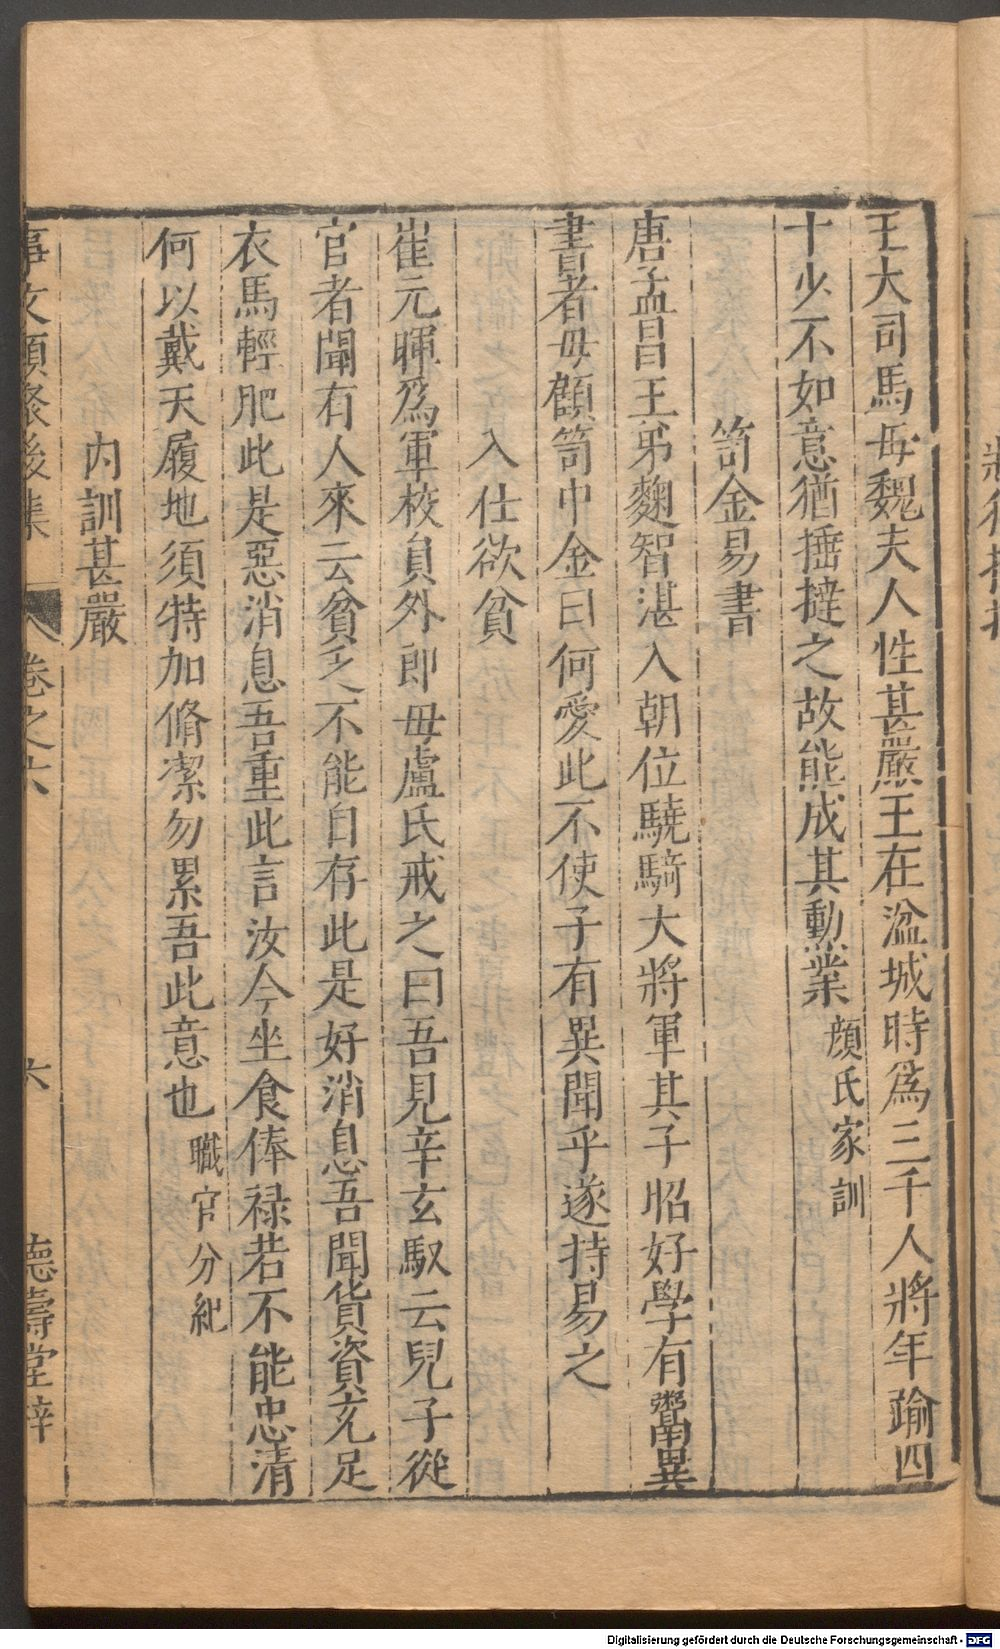 王大司馬母魏夫人性甚嚴王在湓城時爲三千人將年踰四
十少不如意猶捶撻之故能成其勳業 顔氏家訓
笥金易書
唐孟昌王弟麴智湛入朝位驍騎大將軍其子昭好學有鬻異
書者母顧笥中金曰何愛此不使子有異聞乎遂持易之
入仕欲貧
崔元暉爲軍校員外郎母盧氏戒之曰吾見辛玄馭云兒子從
官者聞有人來云貧乏不能自存此是好消息吾聞貨資充足
衣馬輕肥此是惡消息吾重此言汝今坐食俸祿若不能忠清
何以戴天履地須特加脩潔勿累吾此意也 職官分紀
内訓甚嚴
事文類聚後集 卷之六 六 德壽堂梓
Digitalisierung gefördert durch die Deutsche Forschungsgemeinschaft - DFG